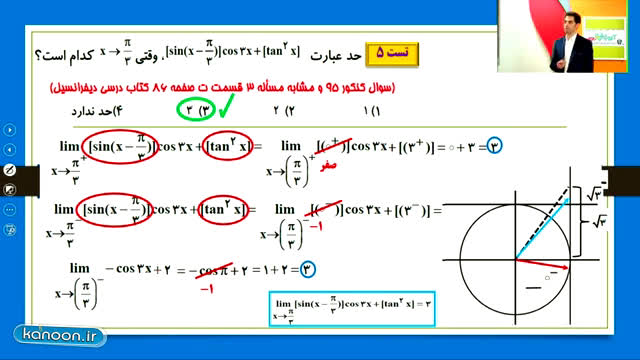 تست ۵ حد عبارت [sin(x − π/۳)]cos ۳x + [tan² x]، وقتی x → π/۳ کدام است؟
(سوال کنکور ۹۵ و مشابه مسأله ۳ قسمت ت صفحه ۸۶ کتاب درسی دیفرانسیل)
۱) ۱ ۲) ۲ ۳) ۳ ✓ ۴) حد ندارد
lim x→π/۳⁺ [sin(x − π/۳)]cos ۳x + [tan² x] = lim x→(π/۳)⁺ [(۰⁺)]cos ۳x + [(۳⁺)] = ۰ + ۳ = ۳
صفر
lim x→π/۳⁻ [sin(x − π/۳)]cos ۳x + [tan² x] = lim x→(π/۳)⁻ [(۰⁻)]cos ۳x + [(۳⁻)] =
−۱
lim x→(π/۳)⁻ −cos ۳x + ۲ = −cos π + ۲ = ۱ + ۲ = ۳
−۱
lim x→π/۳ [sin(x − π/۳)]cos ۳x + [tan² x] = ۳
√۳⁻
√۳
۰⁻
kanoon.ir